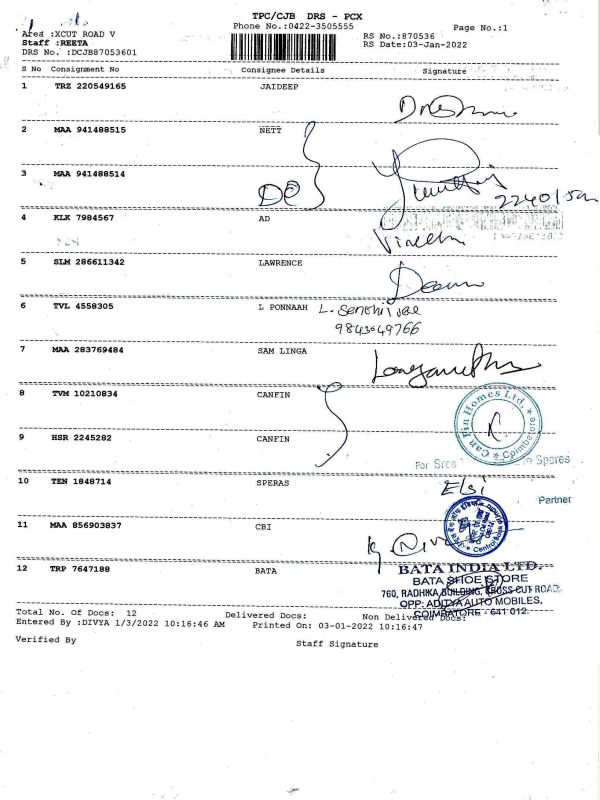 TPC/CJB DRS - PCX
Phone No.:0422-3505555
Page No.:1
Area :XCUT ROAD V
RS No.:870536
Staff :REETA
RS Date:03-Jan-2022
DRS No. :DCJB87053601
S No Consignment No Consignee Details Signature
1 TRZ 220549165 JAIDEEP
2 MAA 941488515 NETT
3 MAA 941488514
DC
4 KLK 7984567 AD
Vineeth
5 SLM 286611342 LAWRENCE
6 TVL 4558305 L PONNAAH L. Senthil
9843049766
7 MAA 283769484 SAM LINGA
8 TVM 10210834 CANFIN
Can Fin Homes Ltd. Coimbatore
9 HSR 2245282 CANFIN
For Sree Spares
10 TEN 1848714 SPERAS
Partner
11 MAA 856903837 CBI
12 TRP 7647188 BATA
BATA INDIA LTD.
BATA SHOE STORE
760, RADHIKA BUILDING, CROSS CUT ROAD,
OPP: ADITYA AUTO MOBILES,
COIMBATORE - 641 012.
Total No. Of Docs: 12 Delivered Docs: Non Delivered Docs:
Entered By :DIVYA 1/3/2022 10:16:46 AM Printed On: 03-01-2022 10:16:47
Verified By Staff Signature